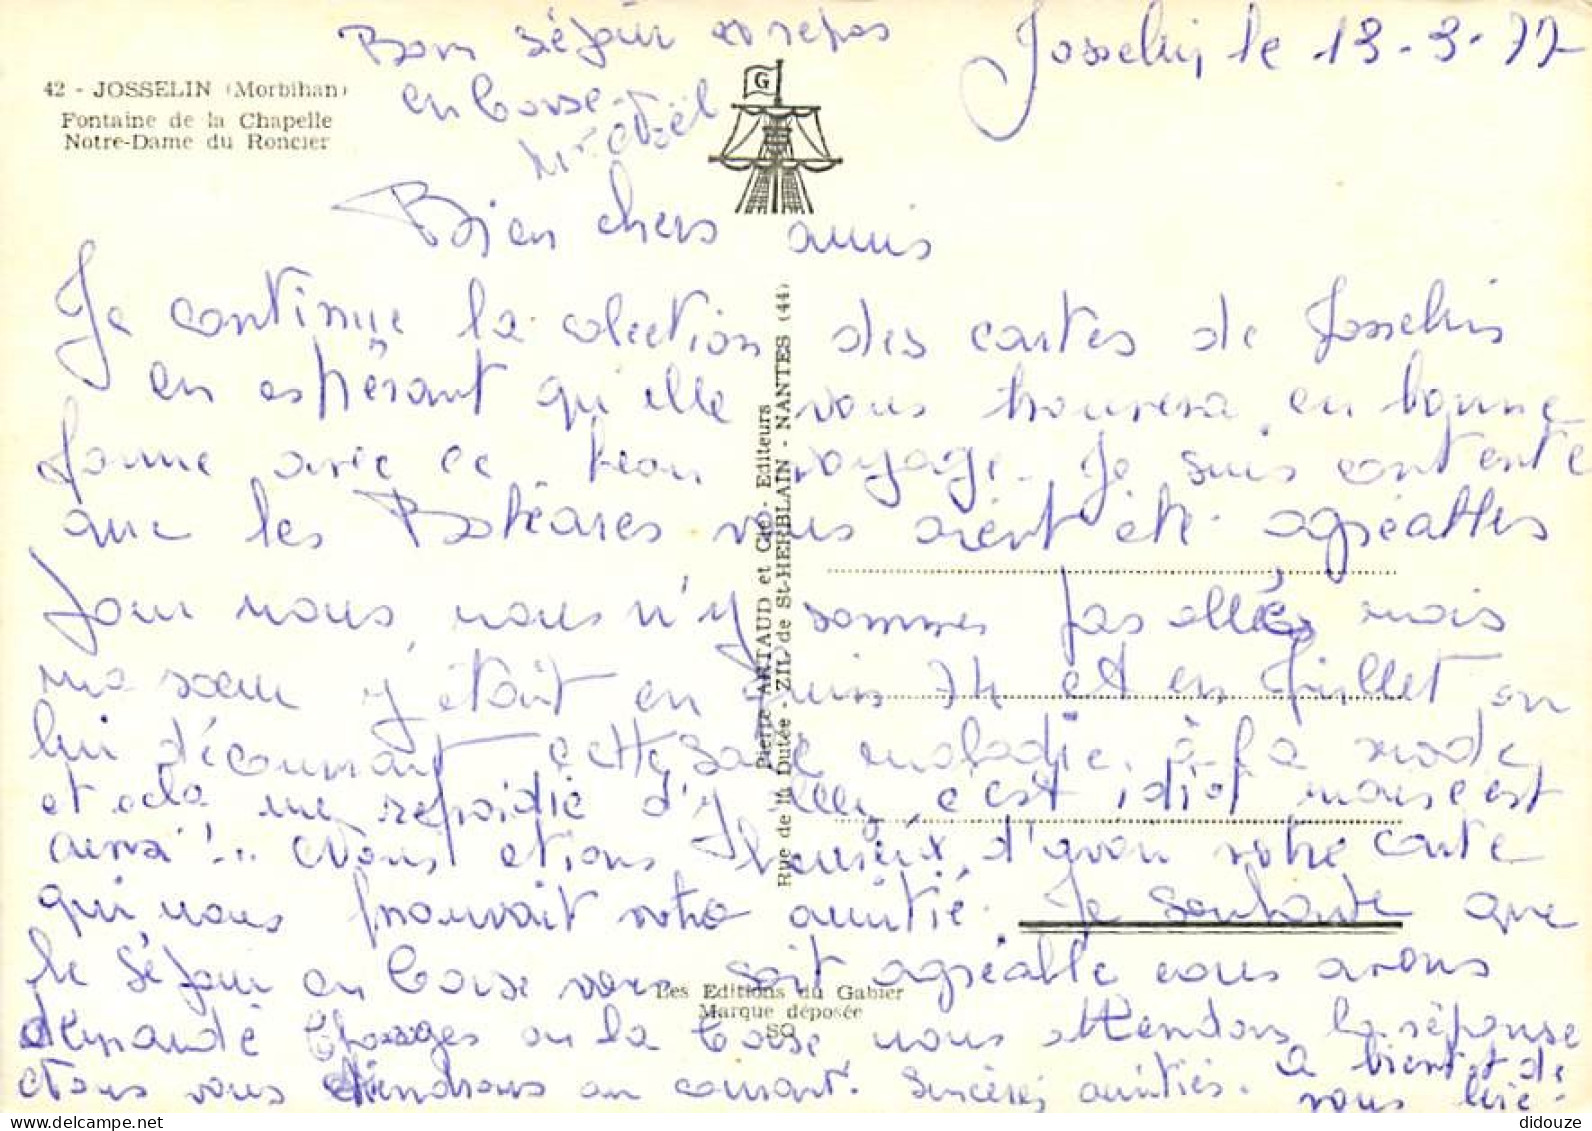 Josselin le 13-3-77
Bon séjour et repos
en Corse
42 - JOSSELIN (Morbihan)
Fontaine de la Chapelle
Notre-Dame du Roncier
G
Bien chers amis
Je continue la colection des cartes de Josselin
en espérant qu'elle vous trouvera en bonne
forme avec ce beau voyage. Je suis contente
que les Baléares vous aient été agréables
pour nous, nous n'y sommes pas allés mais
ma sœur y était en Juin 74 et en Juillet on
lui découvrait cette sale maladie à la mode,
et cela me refroidie d'y aller, c'est idiot mais c'est
ainsi !.. Nous étions heureux d'avoir votre carte
qui nous prouvait votre amitié. Je souhaite que
le séjour en Corse vous soit agréable nous avons
demandé ou la Corse nous attendons la réponse
et vous tiendrons au courant. Sincères amitiés. A bientôt de
vous lire.
Pierre ARTAUD et Cie - Editeurs
Rue de la Dutée - ZIL de St-HERBLAIN - NANTES (44)
Les Editions du Gabier
Marque déposée
SO
didouze